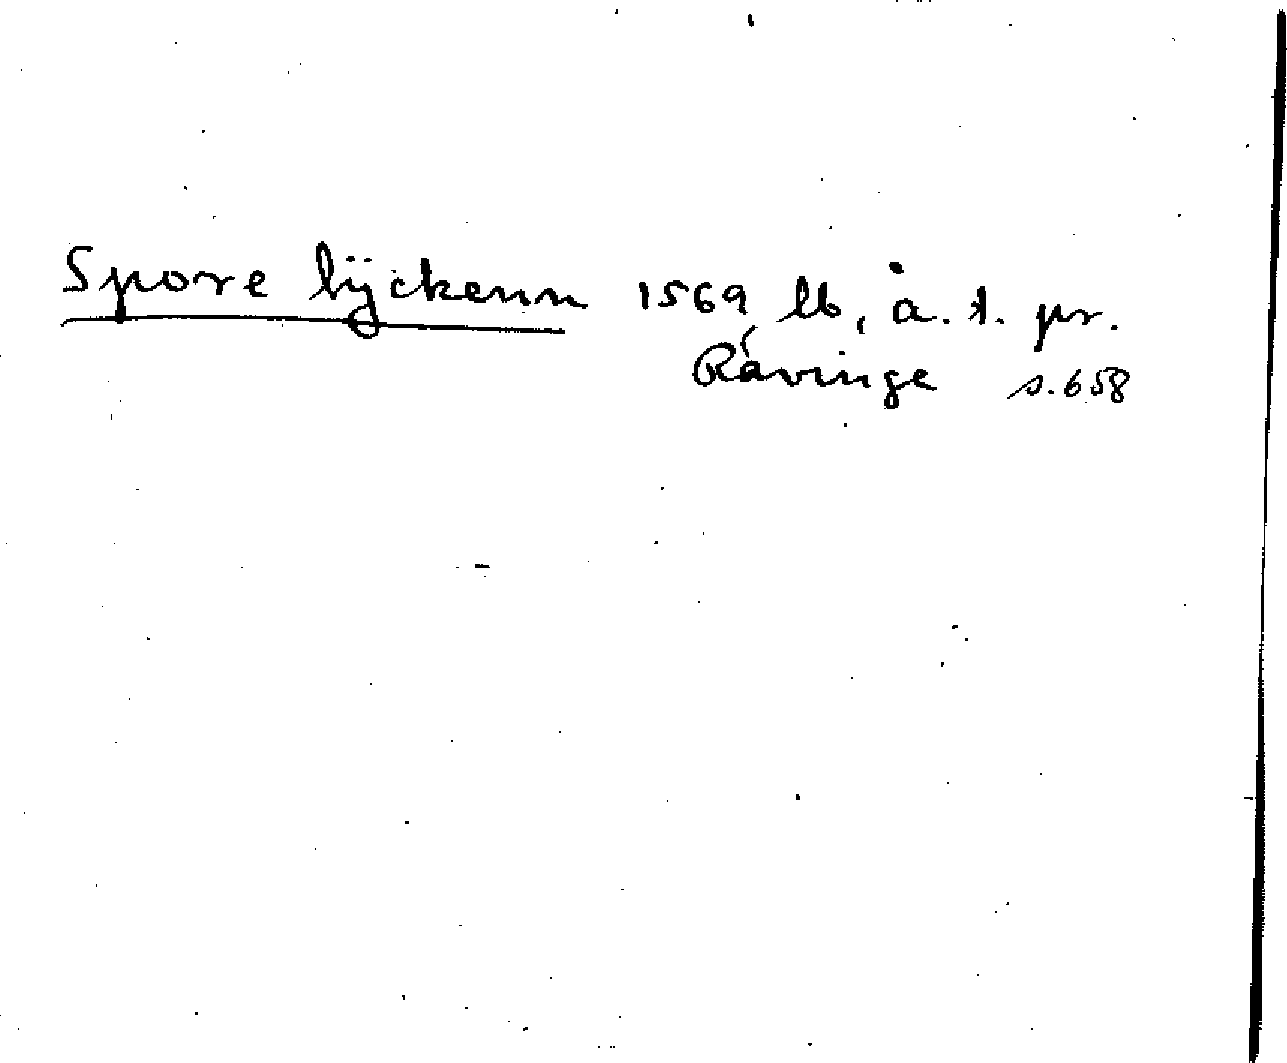 Spore lÿckenn 1569 lb, å. t. pr.
Rävinge s. 658